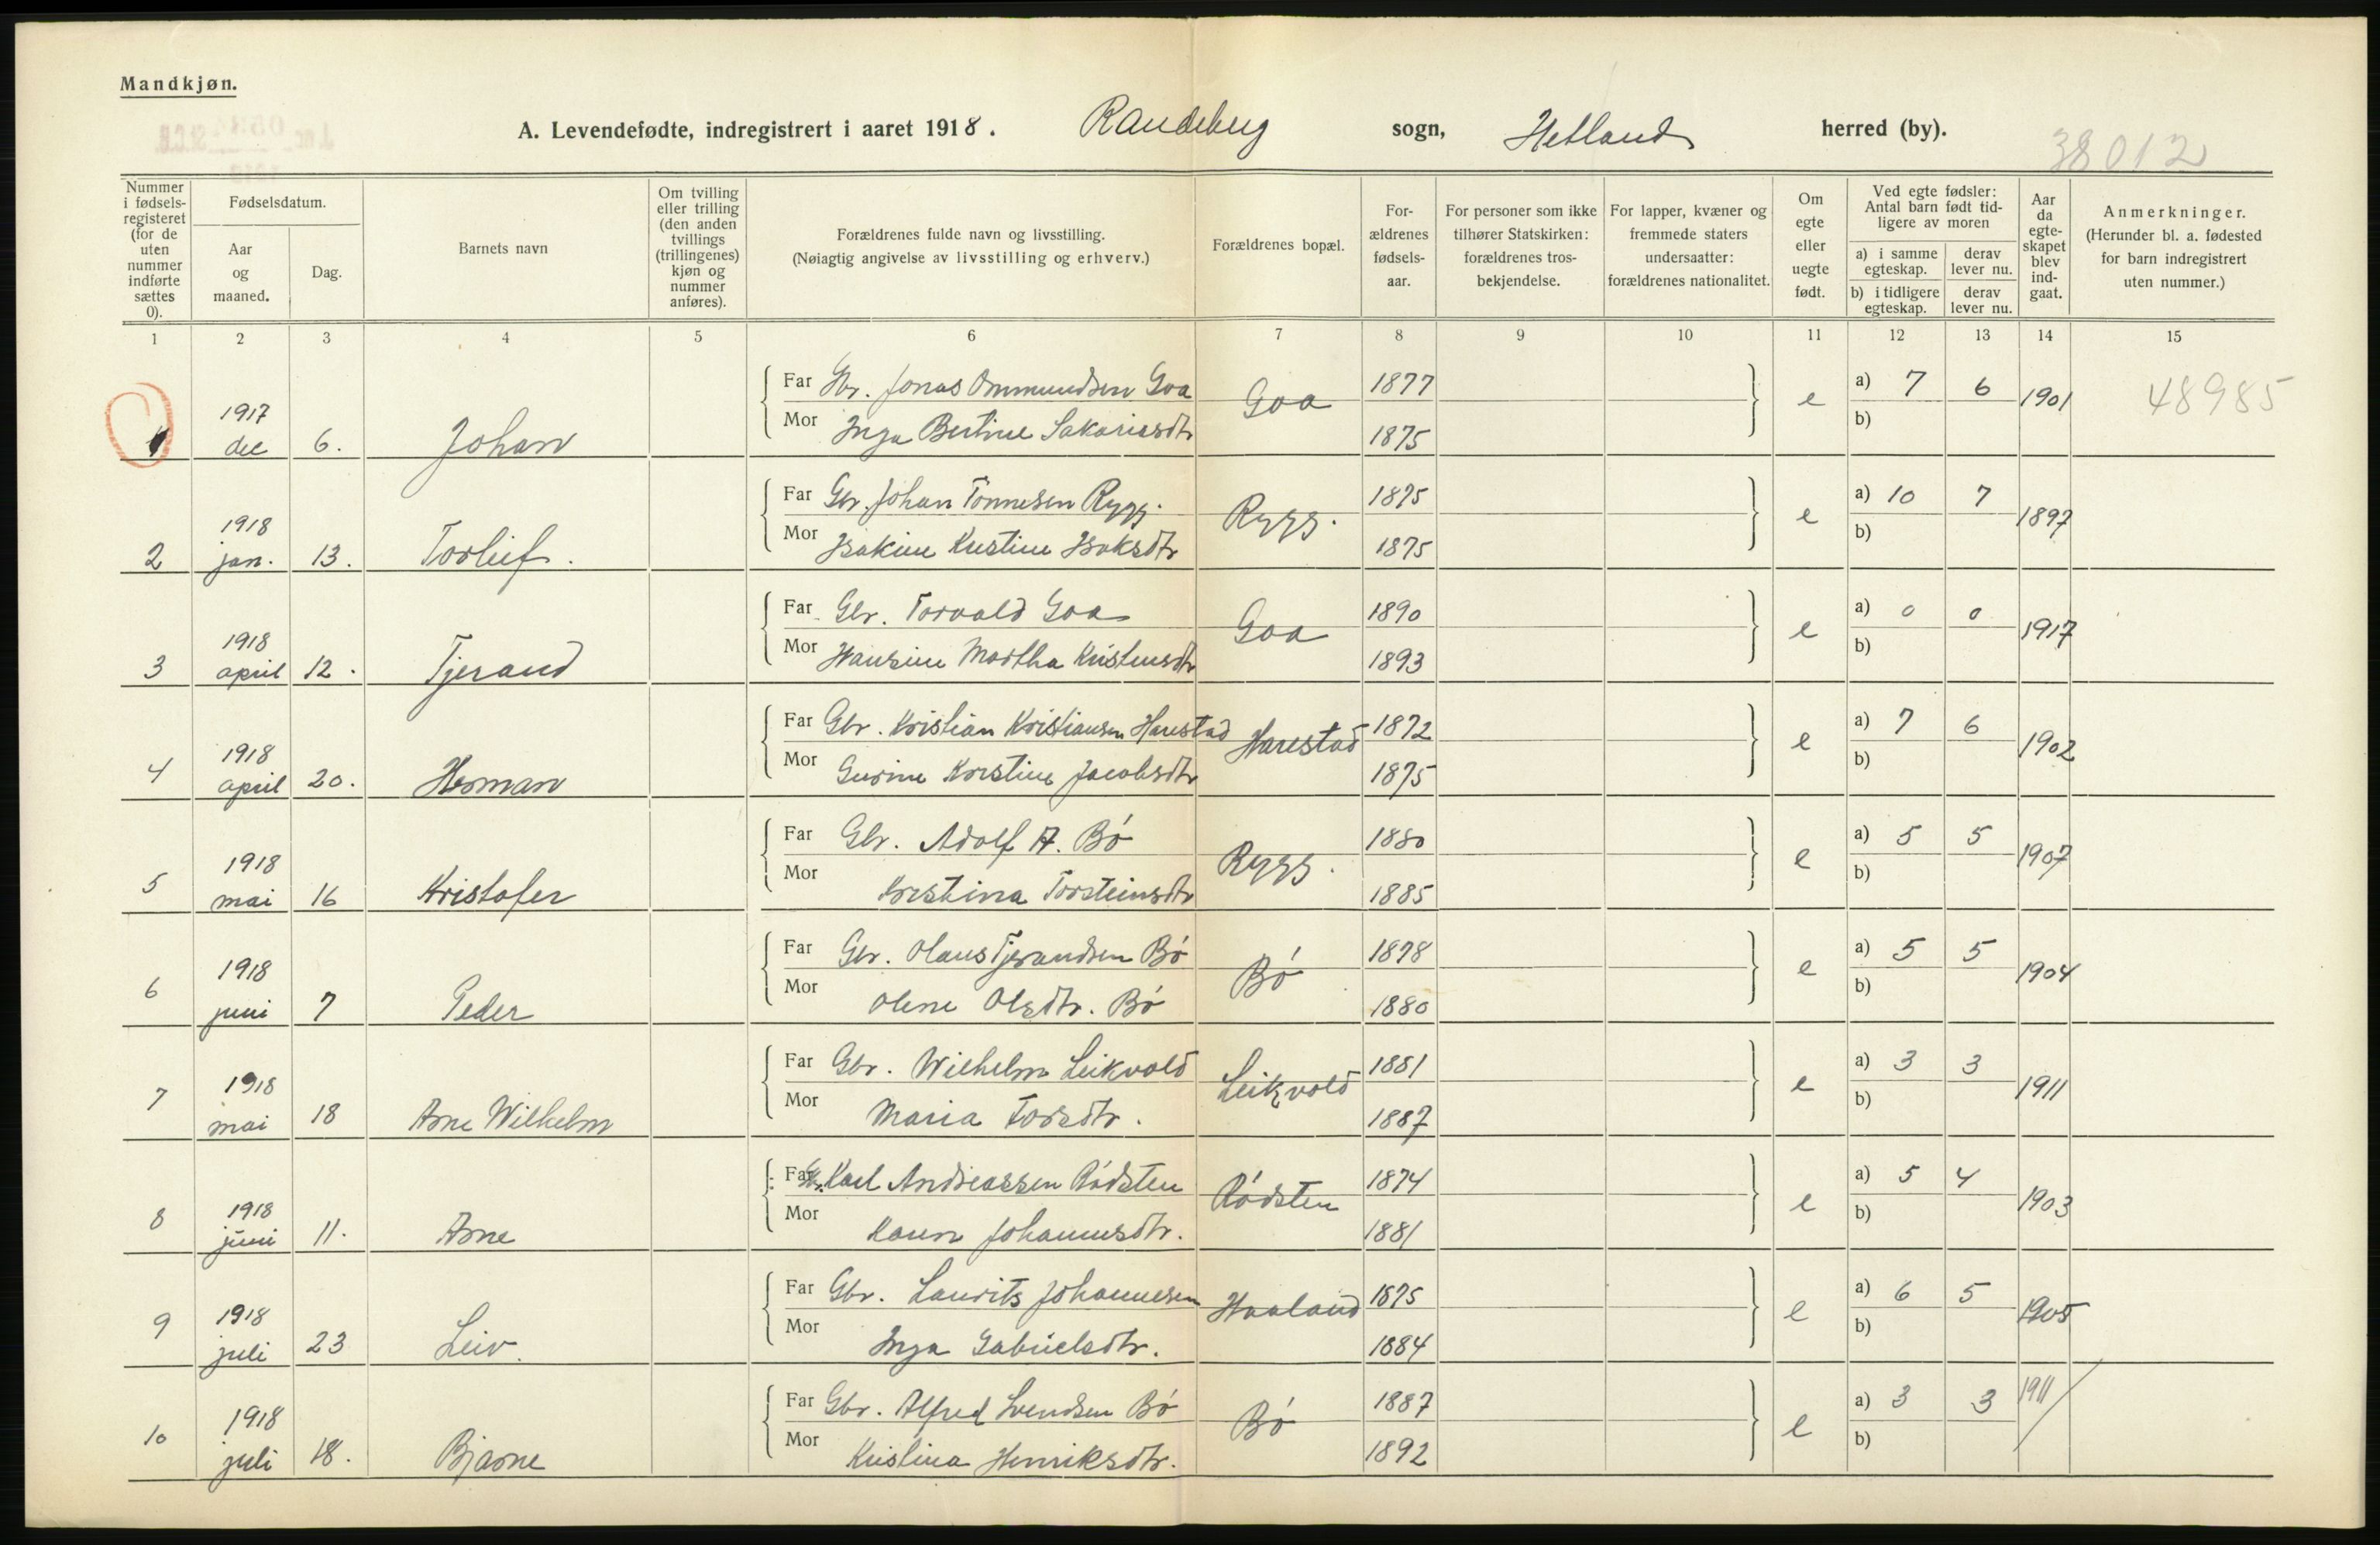 Mandkjøn.
A. Levendefødte, indregistrert i aaret 1918. Randeberg sogn, Hetland herred (by).
38012
Nummer i fødsels-registeret (for de uten nummer indførte sættes 0).
Fødselsdatum.
Aar og maaned.
Dag.
Barnets navn
Om tvilling eller trilling (den anden tvillings (trillingenes) kjøn og nummer anføres).
Forældrenes fulde navn og livsstilling.
(Nøiagtig angivelse av livsstilling og erhverv.)
Forældrenes bopæl.
For-ældrenes fødsels-aar.
For personer som ikke tilhører Statskirken: forældrenes tros-bekjendelse.
For lapper, kvæner og fremmede staters undersaatter: forældrenes nationalitet.
Om egte eller uegte født.
Ved egte fødsler: Antal barn født tid-ligere av moren
a) i samme egteskap.
derav lever nu.
b) i tidligere egteskap.
derav lever nu.
Aar da egte-skapet blev ind-gaat.
Anmerkninger.
(Herunder bl. a. fødested for barn indregistrert uten nummer.)
1 2 3 4 5 6 7 8 9 10 11 12 13 14 15
1 1917 dec 6. Johan
Far Gbr. Jonas Ommundsen Goa Goa 1877 e a) 7 6 1901 48985
Mor Inga Bertine Sakariasdtr 1875 b)
2 1918 jan. 13. Torleif.
Far Gbr. Johan Tønnesen Rygg. Rygg. 1875 e a) 10 7 1897
Mor Isakine Kristine Isaksdtr 1875 b)
3 1918 april 12. Tjerand
Far Gbr. Torvald Goa Goa 1890 e a) 0 0 1917
Mor Hansine Martha Kristensdtr 1893 b)
4 1918 april 20. Herman
Far Gbr. Kristian Kristiansen Harestad Harestad 1872 e a) 7 6 1902
Mor Gurine Kristine Jacobsdtr 1875 b)
5 1918 mai 16 Kristofer
Far Gbr. Adolf A. Bø Rygg. 1880 e a) 5 5 1907
Mor Kristina Torsteinsdtr 1885 b)
6 1918 juni 7 Peder
Far Gbr. Olaus Tjerandsen Bø Bø 1878 e a) 5 5 1904
Mor Olene Olsdtr. Bø 1880 b)
7 1918 mai 18 Arne Wilhelm
Far Gbr. Wilhelm Leikvold Leikvold 1881 e a) 3 3 1911
Mor Maria Torsdtr. 1887 b)
8 1918 juni 11. Arne
Far Gbr. Karl Andreassen Rødsten Rødsten 1874 e a) 5 4 1903
Mor Karen Johannesdtr. 1881 b)
9 1918 juli 23 Leiv.
Far Gbr. Laurits Johannesen Haaland 1875 e a) 6 5 1905
Mor Inga Gabrielsdtr. 1884 b)
10 1918 juli 18. Bjarne
Far Gbr. Alfred Svendsen Bø Bø 1887 e a) 3 3 1911
Mor Kristina Henriksdtr. 1892 b)